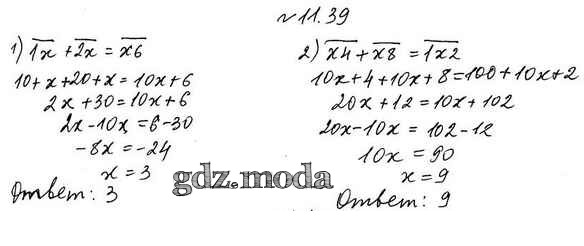 №11.39
1) 1x + 2x = x6
10+x+20+x=10x+6
2x+30=10x+6
2x-10x=6-30
-8x=-24
x=3
Ответ: 3
2) x4+x8=1x2
10x+4+10x+8=100+10x+2
20x+12=10x+102
20x-10x=102-12
10x=90
x=9
Ответ: 9
gdz.moda